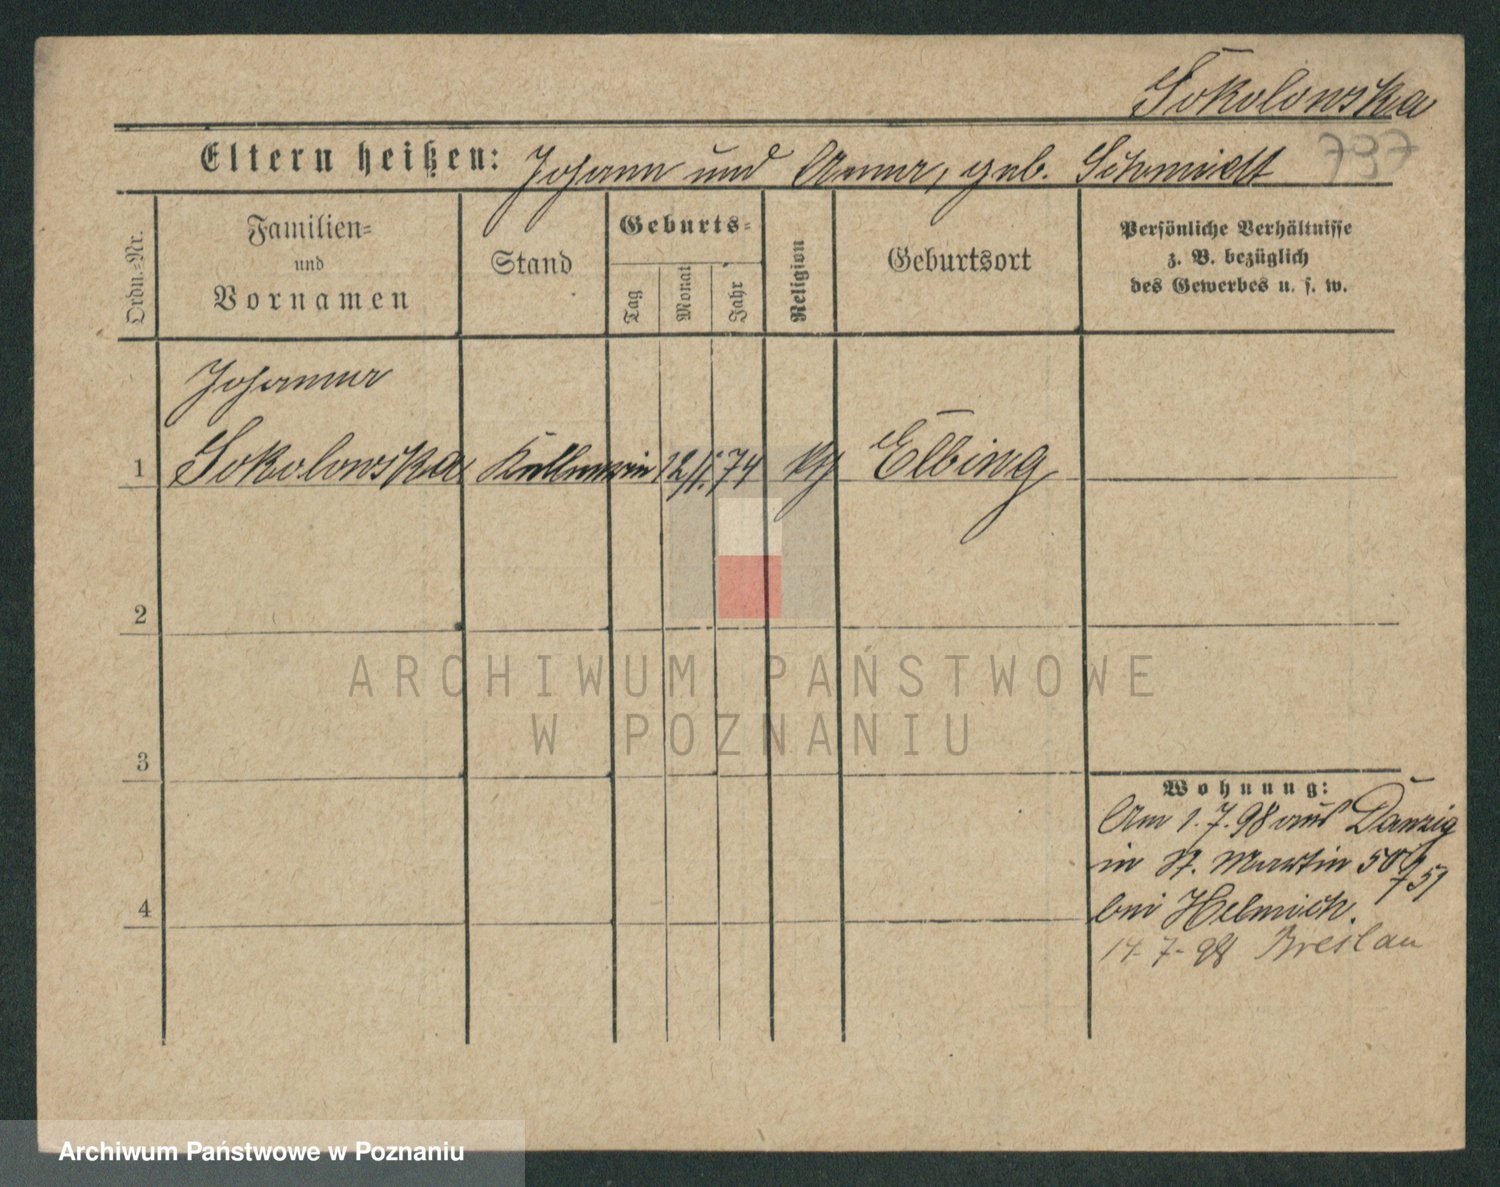 Sokolowska
797
Eltern heißen: Johann und Anna, geb. Schmidt
Ordn.=Nr.
Familien=
und
Vornamen
Stand
Geburts=
Tag
Monat
Jahr
Religion
Geburtsort
Persönliche Verhältnisse
z. B. bezüglich
des Gewerbes u. s. w.
Johanna
1 Sokolowska Kellnerin 12 11. 74 kth Elbing
2
3
4
Wohnung:
Am 1. 7. 98 aus Danzig
in St. Martin 50/51
bei Helmich.
14. 7. 98 Breslau
ARCHIWUM PAŃSTWOWE
W POZNANIU
Archiwum Państwowe w Poznaniu